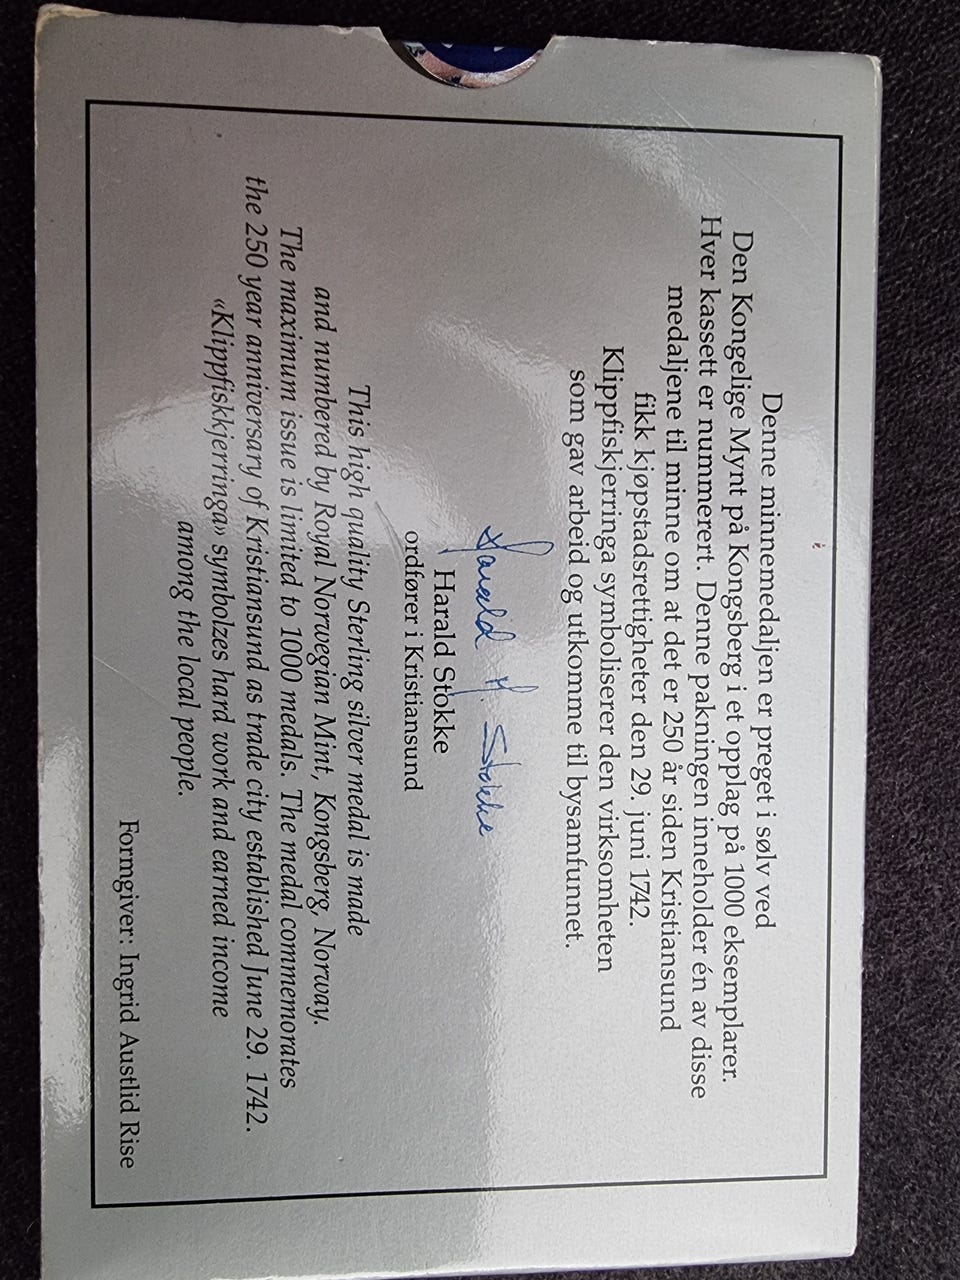 Denne minnemedaljen er preget i sølv ved
Den Kongelige Mynt på Kongsberg i et opplag på 1000 eksemplarer.
Hver kassett er nummerert. Denne pakningen inneholder én av disse
medaljene til minne om at det er 250 år siden Kristiansund
fikk kjøpstadsrettigheter den 29. juni 1742.
Klippfiskjerringa symboliserer den virksomheten
som gav arbeid og utkomme til bysamfunnet.
Harald M. Stokke
Harald Stokke
ordfører i Kristiansund
This high quality Sterling silver medal is made
and numbered by Royal Norwegian Mint, Kongsberg, Norway.
The maximum issue is limited to 1000 medals. The medal commemorates
the 250 year anniversary of Kristiansund as trade city established June 29. 1742.
«Klippfiskkjerringa» symbolzes hard work and earned income
among the local people.
Formgiver: Ingrid Austlid Rise